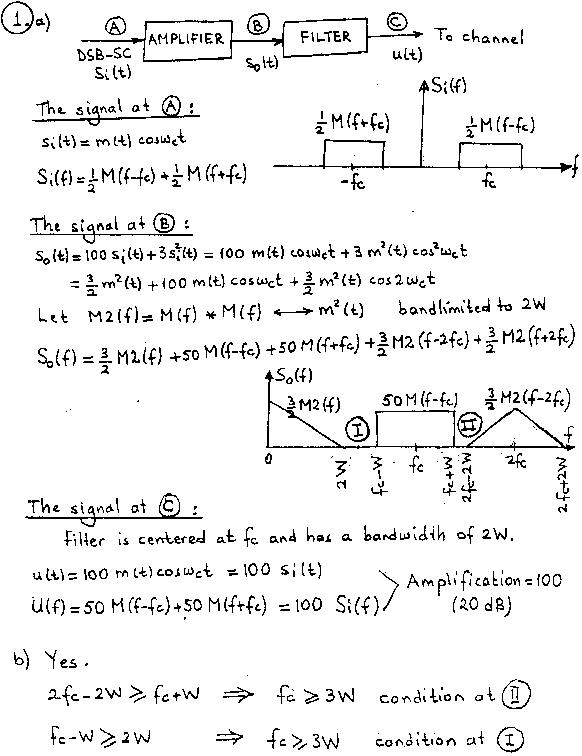 1. a)
A AMPLIFIER B FILTER C To channel
DSB-SC
Si(t) So(t) u(t)
The signal at A :
Si(t) = m(t) cosωct
Si(f) = 1/2 M(f-fc) + 1/2 M(f+fc)
Si(f)
1/2 M(f+fc) 1/2 M(f-fc)
-fc fc f
The signal at B :
So(t) = 100 Si(t) + 3Si²(t) = 100 m(t) cosωct + 3 m²(t) cos²ωct
= 3/2 m²(t) + 100 m(t) cosωct + 3/2 m²(t) cos2ωct
Let M2(f) = M(f) * M(f) ⟷ m²(t) bandlimited to 2W
So(f) = 3/2 M2(f) + 50 M(f-fc) + 50 M(f+fc) + 3/2 M2(f-2fc) + 3/2 M2(f+2fc)
So(f)
3/2 M2(f) I 50 M(f-fc) II 3/2 M2(f-2fc) f
0 2W fc-W fc fc+W 2fc-2W 2fc 2fc+2W
The signal at C :
Filter is centered at fc and has a bandwidth of 2W.
u(t) = 100 m(t) cosωct = 100 Si(t)
U(f) = 50 M(f-fc) + 50 M(f+fc) = 100 Si(f)
Amplification = 100
(20 dB)
b) Yes.
2fc-2W ≥ fc+W ⇒ fc ≥ 3W condition at II
fc-W ≥ 2W ⇒ fc ≥ 3W condition at I